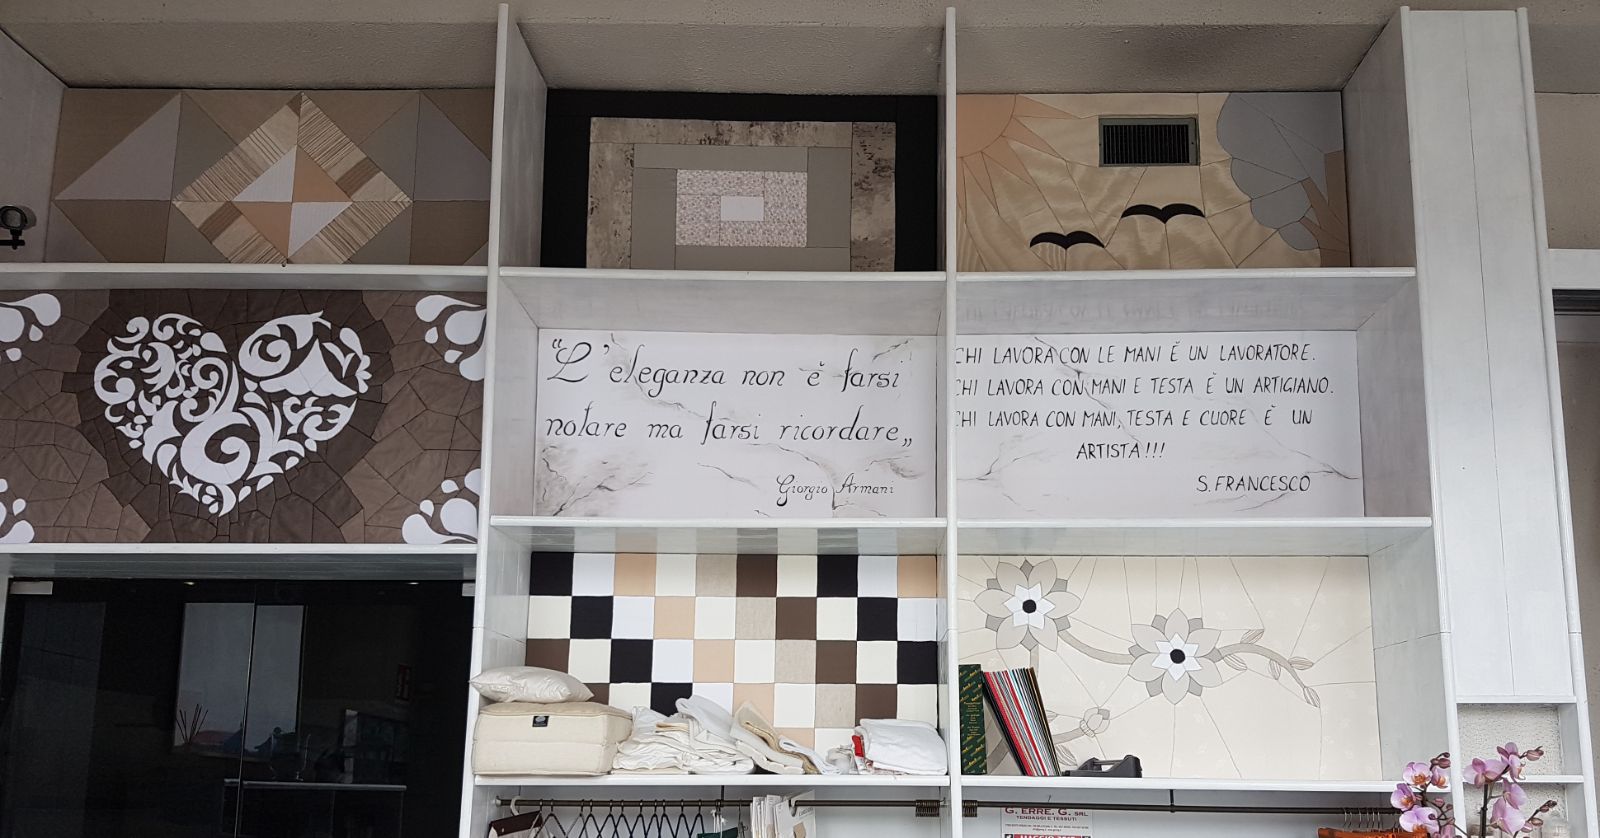 “L'eleganza non è farsi
notare ma farsi ricordare„
Giorgio Armani
CHI LAVORA CON LE MANI È UN LAVORATORE.
CHI LAVORA CON MANI E TESTA È UN ARTIGIANO.
CHI LAVORA CON MANI, TESTA E CUORE È UN
ARTISTA!!!
S. FRANCESCO
G. ERRE. G. SRL
TENDAGGI E TESSUTI